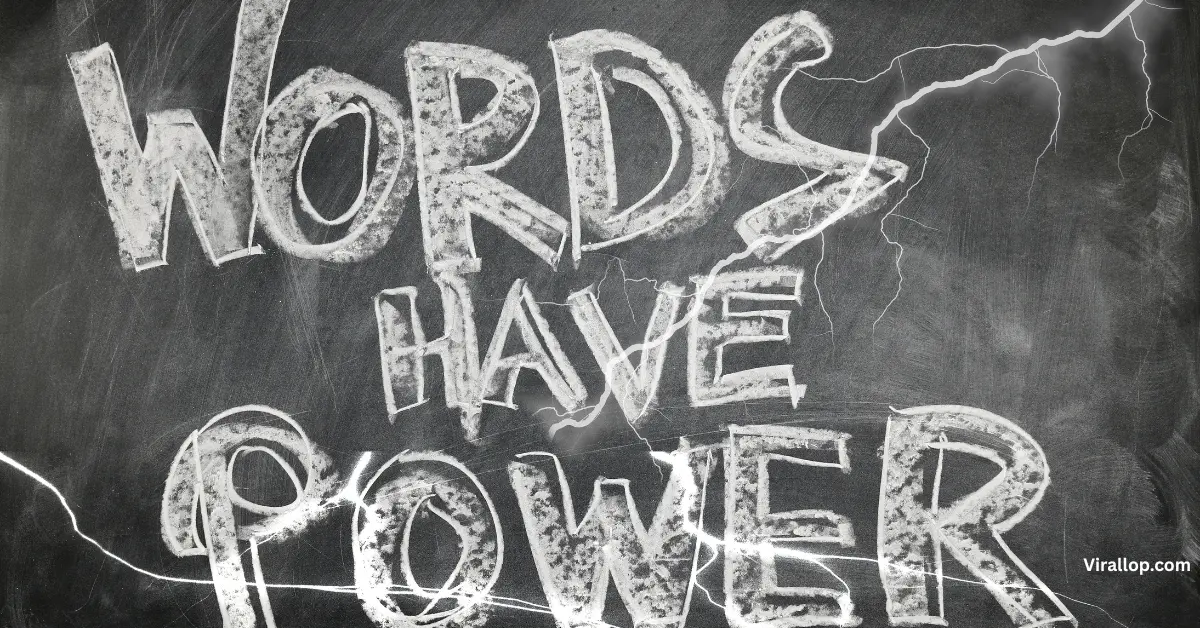 WORDS
HAVE
POWER
Virallop.com